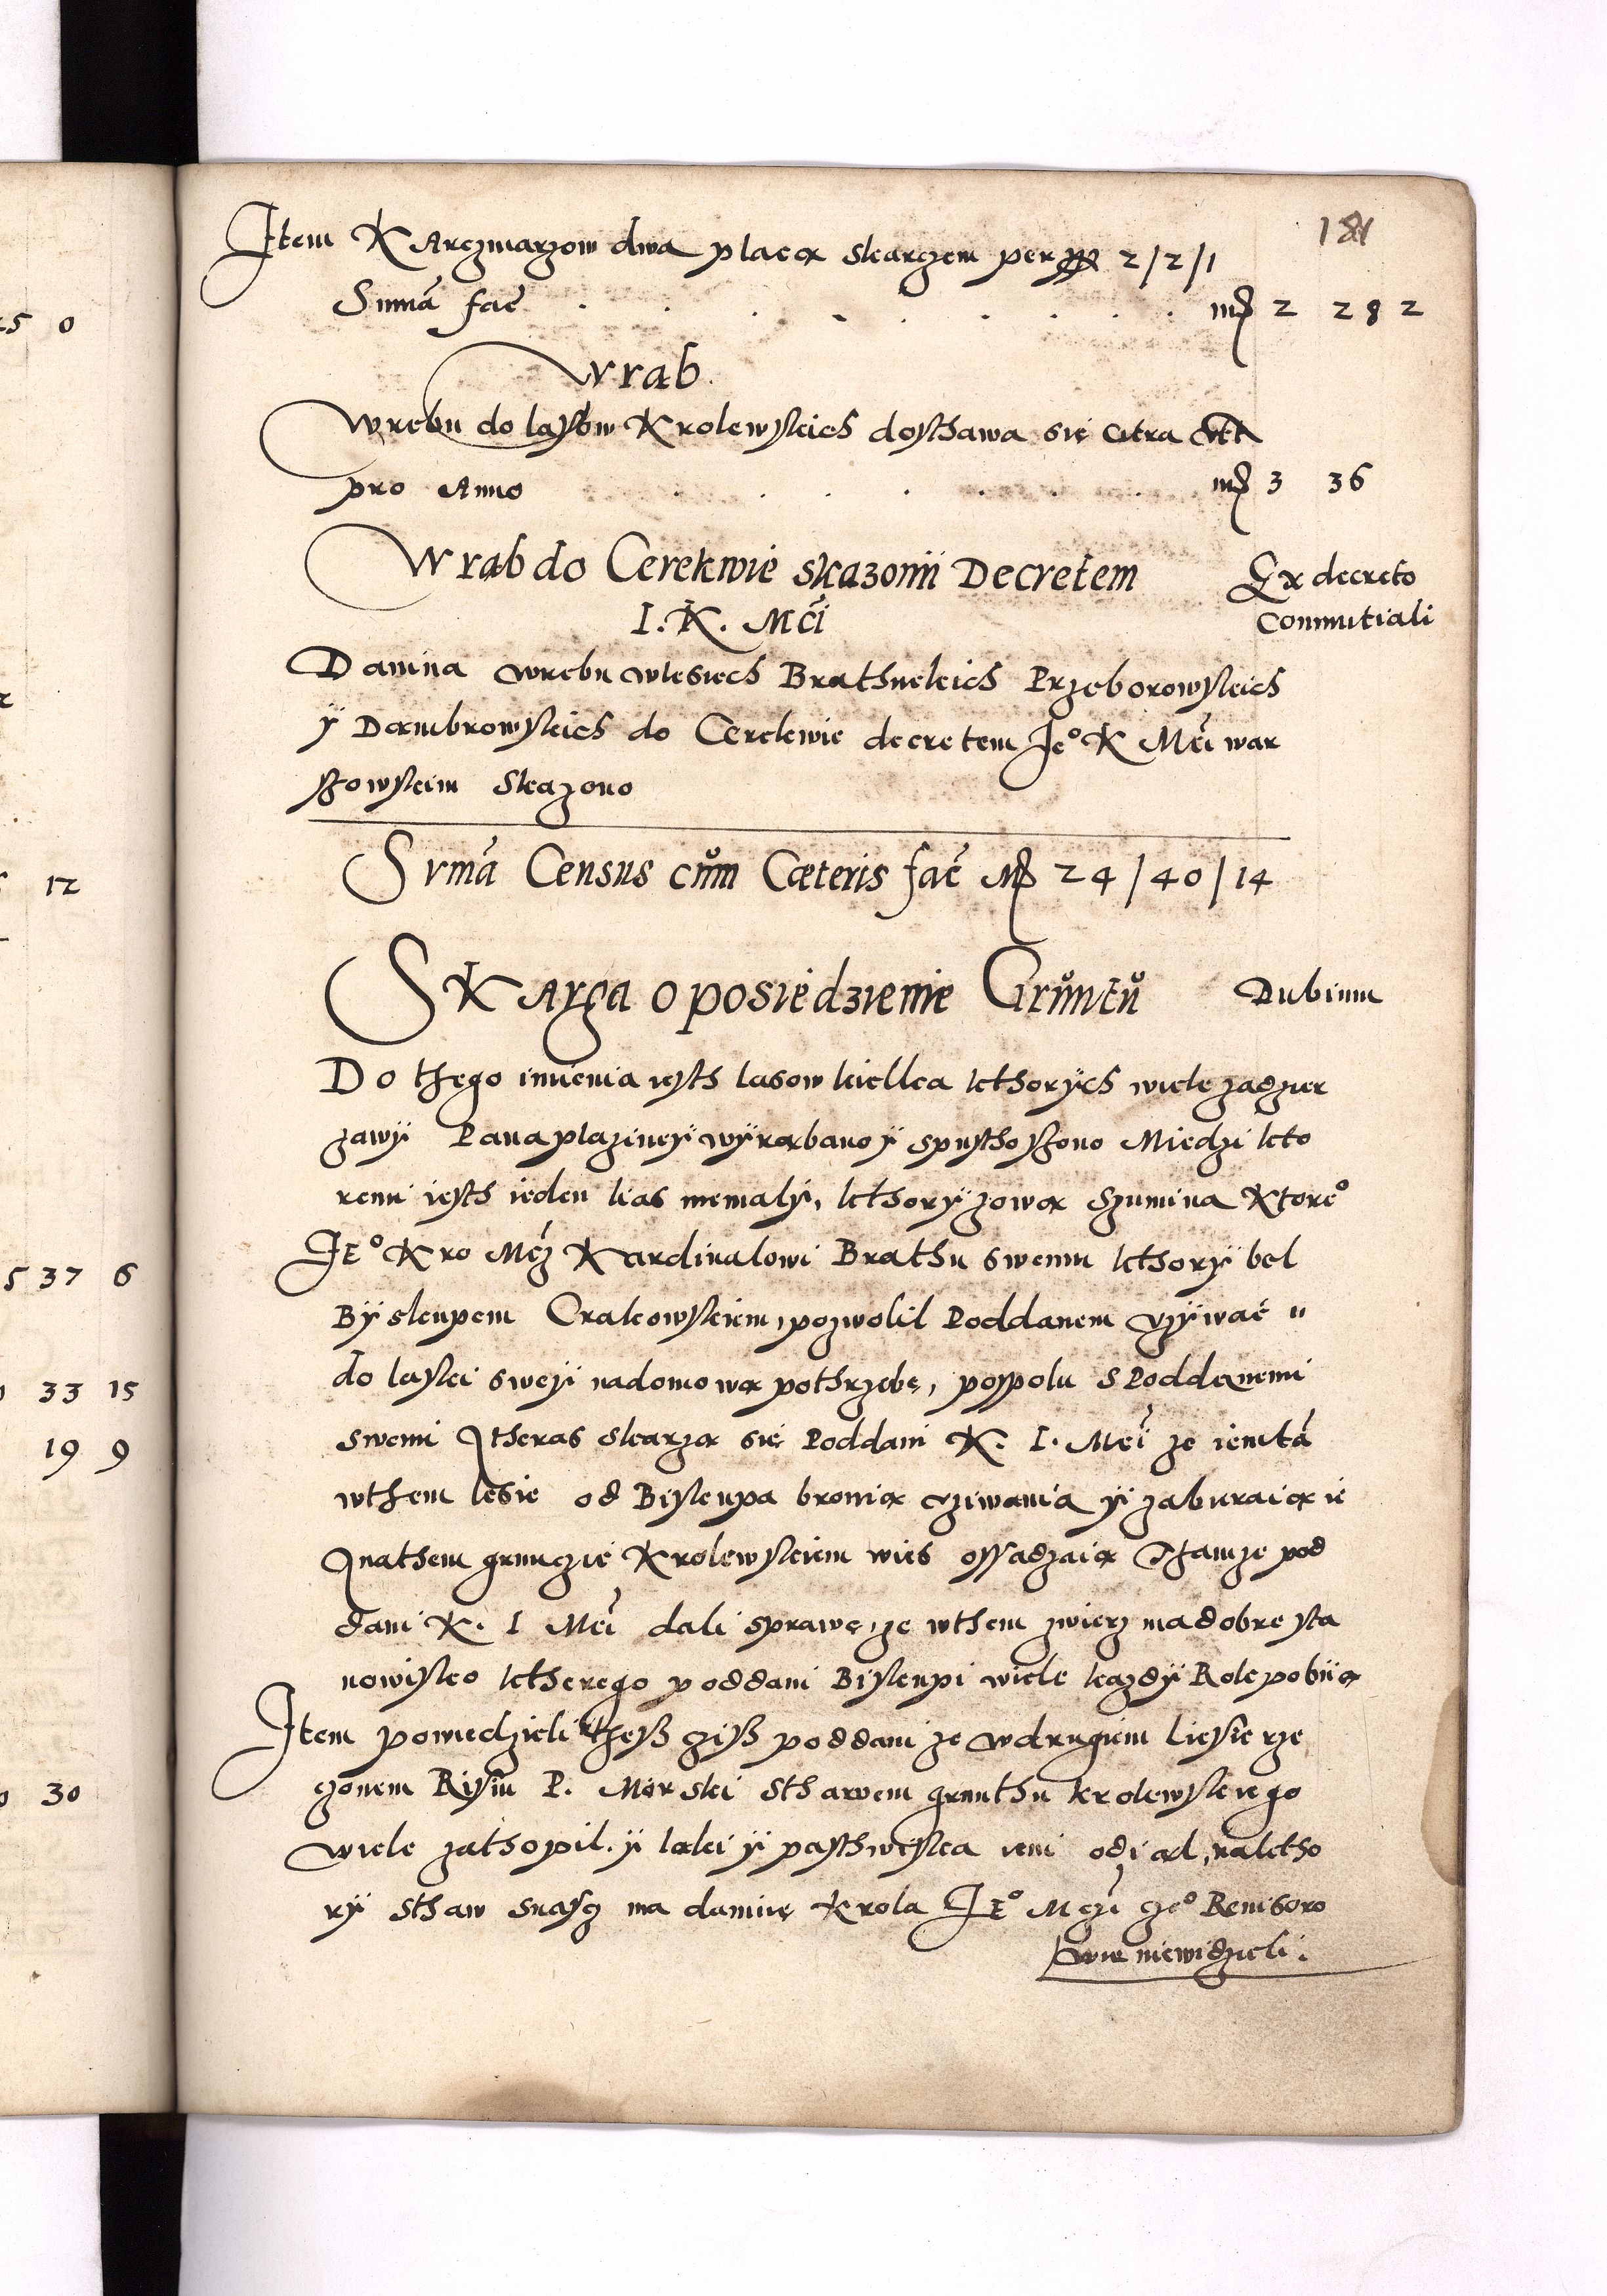 181
Item Karczmarzow dwa placą skarczem per 2/2/1
Sum̄a fać mҙ 2 28 2
Wrąb
Wrębu do lassow Krolewskich dosthawa się citra
pro Anno mҙ 3 36
Wrąb do Cerekwie skazonÿ Decretem
I. K. Mći
Ex decreto
Conmitiali
Danina wrębu wlesiech Brathuckich Przeborowskich
ÿ Dąmbrowskich do Cerekwie decretem Je° K Mći war
szowskim Skazono
Sum̄a Census cům Cæteris fać Mҙ 24/40/14
SKArga o posiedzienie Grůntů
Dubium
Do thego imienia iesth lasow kielka kthorÿch wiele zadzier
zawÿ Pana plazineÿ wÿrąbano ÿ spusthoszono Miedzi kto
remi iesth ieden lias niemalÿ, kthorÿ zową Szumina Ktore°
JE° Kro Mćz Kardinalowi Brathu swemu kthorÿ bel
Bÿskupem Crakowskiem, pozwolil Poddanem vzÿwać "
do laski sweÿ nadomową pothrzebę, pospolu S Poddanemi
swemi J theras skarzą się Poddani K. I. Mći ze iemtā
wthem lesie od Biskupa bronią vziwania ÿ zabieraią ie
J nathem grunczie Krolewskiem wies ossadzaią Thamze pod
dani K. I Mći dali sprawę, ze wthem zwierz ma dobre sta
nowisko ktherego poddani Biskupi wiele kazdÿ Rok pobiią
Item powiedzieli thesz czisz poddani ze wdrugiem liesie rze
czonem Risiu P. Morski Stharvem grunthu krolewskiego
wiele zathopil. ÿ ląki ÿ pasthwiska iemi odiąl, naktho
rÿ Sthaw snascz ma daninę Krola JE° Mczi cze° Renisoro
wie niewidzieli.
25 0
12
5 37 6
33 15
19 9
30